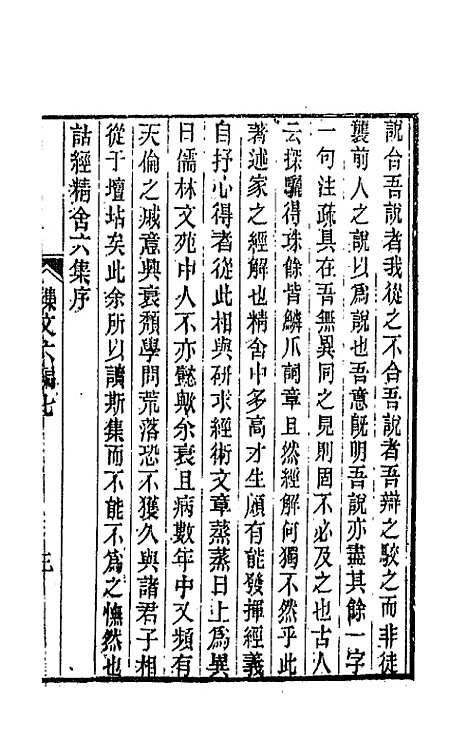 說合吾說者我從之不合吾說者吾辯之駮之而非徒
襲前人之說以爲說也吾意既明吾說亦盡其餘一字
一句注疏具在吾無異同之見則固不必及之也古人
云探驪得珠餘皆鱗爪詞章且然經解何獨不然乎此
著述家之經解也精舍中多高才生頋有能發揮經義
自抒心得者從此相與硏求經術文章蒸蒸日上爲異
日儒林文苑中人不亦懿歟余衰且病數年中又頻有
天倫之戚意興衰頹學問荒落恐不獲久與諸君子相
從于壇坫矣此余所以讀斯集而不能不爲之憮然也
詁經精舍六集序
襍文六編七
三